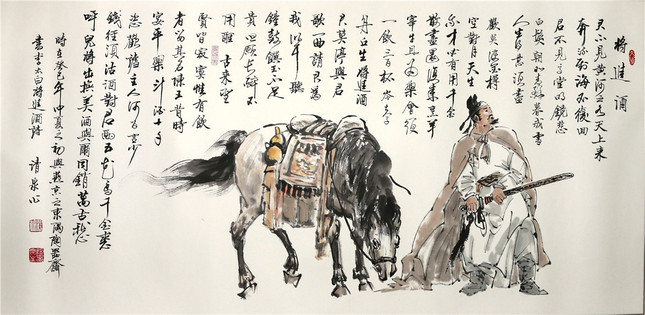 将進酒
君不見黃河之水天上来
奔流到海不復回
君不見高堂明鏡悲
白髮朝如青絲暮成雪
人生得意須盡
歡莫使金樽
空對月天生
我才必有用千金
散盡還復来烹羊
宰牛且為樂會須
一飲三百杯岑夫子
丹丘生将進酒
君莫停與君
歌一曲請君為
我側耳聽
鐘鼓饌玉不足
貴但願長醉不
用醒古来聖
賢皆寂寞惟有飲
者留其名陳王昔時
宴平樂斗酒十千
恣歡謔主人何為言少
錢徑須沽酒對君酌五花馬千金裘
呼兒将出換美酒與爾同銷萬古愁
時在癸巳年仲夏之初與燕京之東隅陶齋
書李太白将進酒詩 清泉